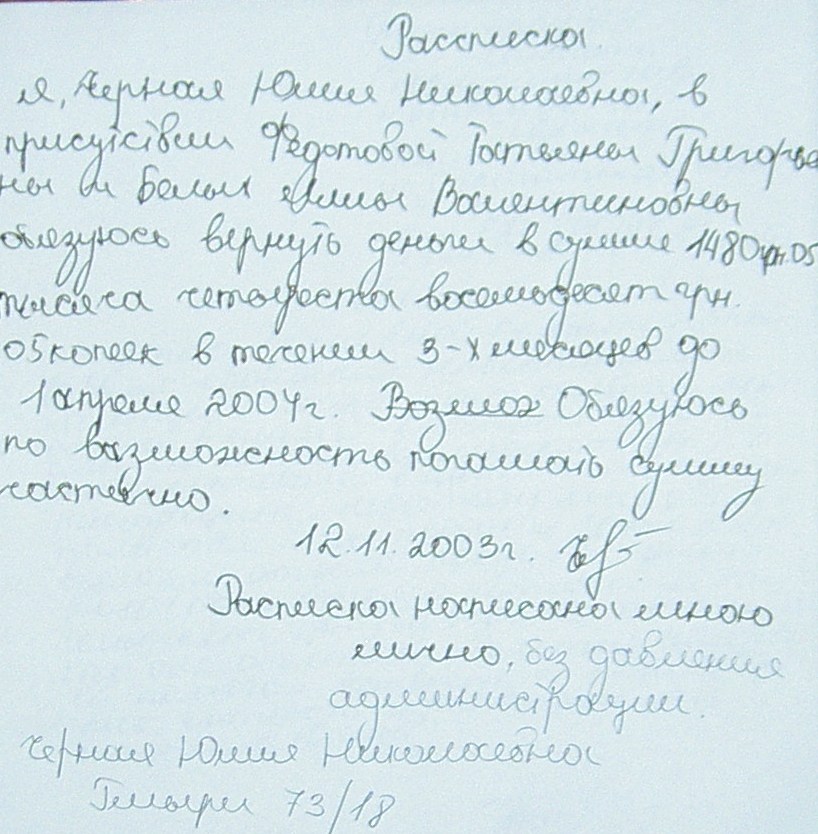 Рассписка
я, Черная Юлия Николаевна, в
присутствии Федотовой Татьяны Григорьев
ны и Белых Аллы Валентиновны
обязуюсь вернуть деньги в сумме 1480грн.05
тысяча четыреста восемьдесят грн.
05 копеек в течении 3-х месяцев до
1 апреля 2004г. Возмож Обязуюсь
по вазможность погашать сумму
частечно.
12.11.2003г.
Расписка написана мною
лично, без давления
администрации.
Черная Юлия Николаевна
73/18